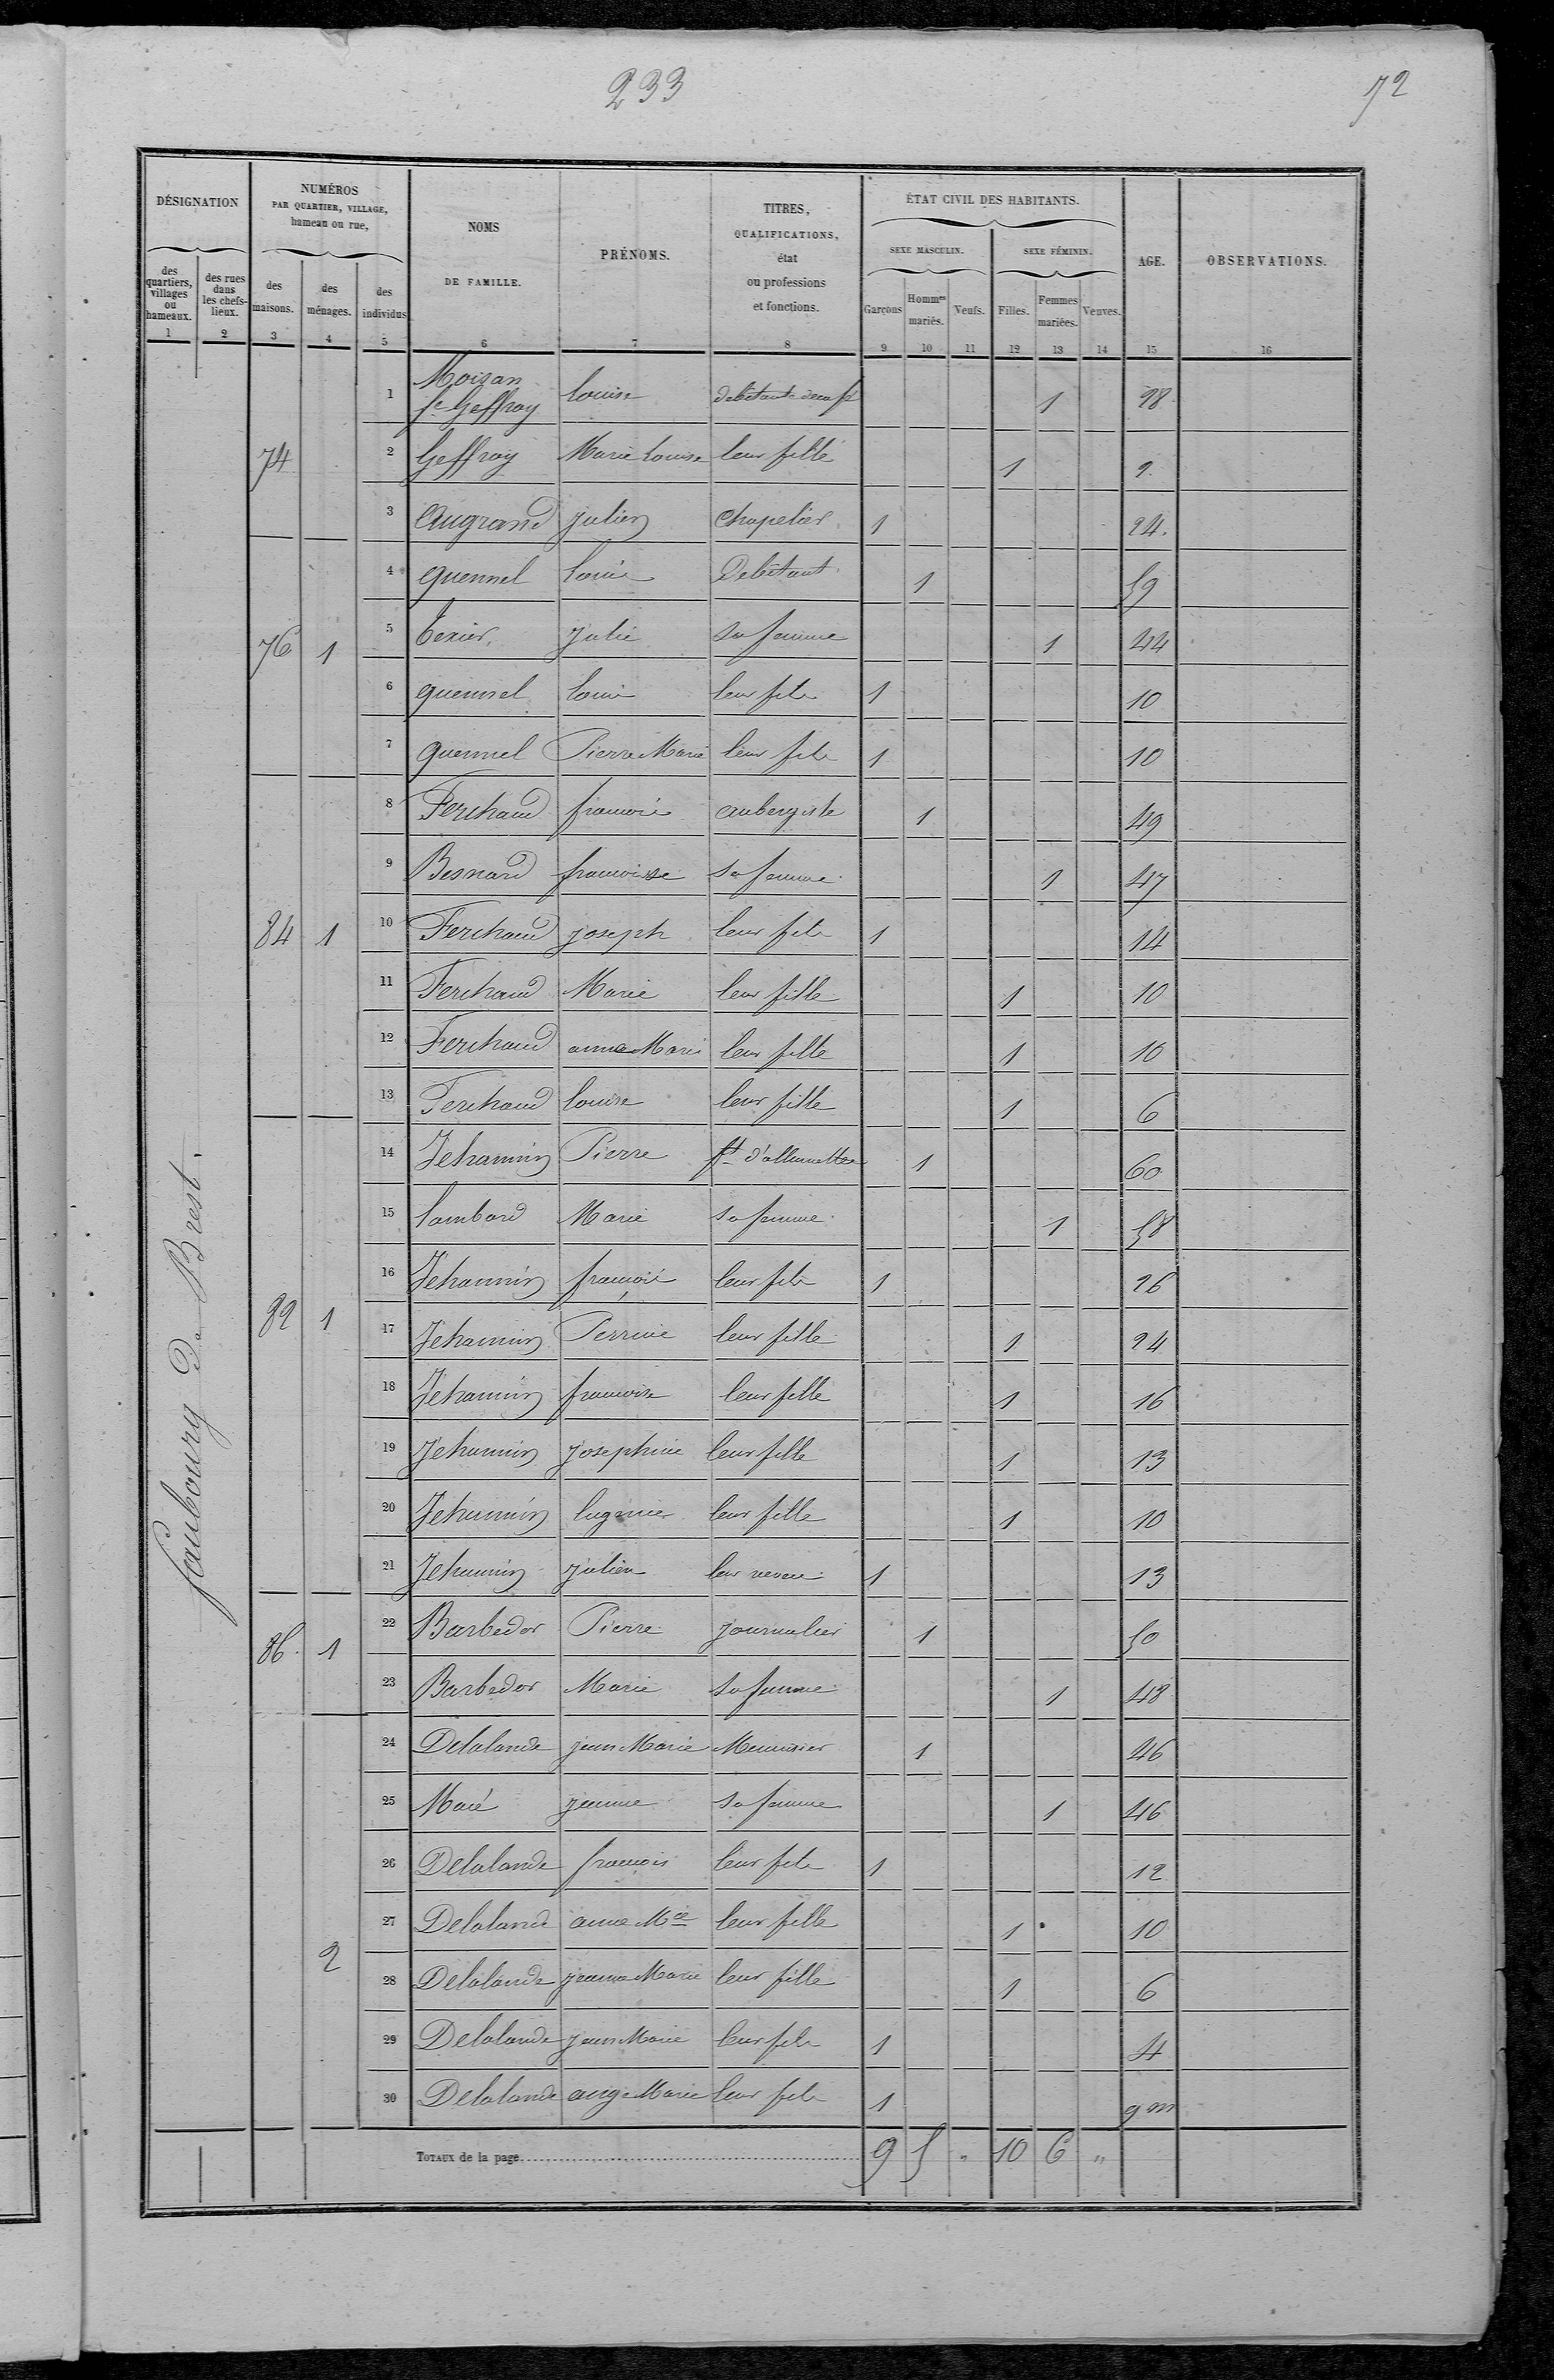 233
72
DÉSIGNATION
des quartiers, villages ou hameaux.
des rues dans les chefs-lieux.
NUMÉROS
PAR QUARTIER, VILLAGE,
hameau ou rue,
des maisons.
des ménages.
des individus
NOMS
DE FAMILLE.
PRÉNOMS.
TITRES,
QUALIFICATIONS,
état
ou professions
et fonctions.
ÉTAT CIVIL DES HABITANTS.
SEXE MASCULIN.
SEXE FÉMININ.
Garçons
Hommes mariés.
Veufs.
Filles.
Femmes mariées.
Veuves.
AGE.
OBSERVATIONS.
1 2 3 4 5 6 7 8 9 10 11 12 13 14 15 16
faubourg de Brest.
1 Moisan fe Geffroy Louise debitante 1 28
74 2 Geffroy Marie Louise leur fille 1 2
3 Augrand julien Chapelier 1 24.
4 quennel Louis Debitant 1 59
76 1 5 Texier julie sa femme 1 44
6 quennel Louis leur fils 1 10
7 quennel Pierre Marie leur fils 1 10
8 Ferchaud francois aubergiste 1 49
9 Besnard francoise sa femme 1 47
84 1 10 Ferchaud joseph leur fils 1 14
11 Ferchaud Marie leur fille 1 10
12 Ferchaud anne Marie leur fille 1 10
13 Ferchaud louise leur fille 1 6
14 Jehannin Pierre ft d'allumettes 1 60
15 Lambard Marie sa femme 1 58
16 Jehannin françois leur fils 1 26
82 1 17 Jehannin Perrine leur fille 1 24
18 Jehannin francoise leur fille 1 16
19 Jehannin josephine leur fille 1 13
20 Jehannin leur fille 1 10
21 Jehannin julien leur neveu 1 13
86. 1 22 Barbedor Pierre journalier 1 50
23 Barbedor Marie sa femme 1 48
24 Delalande jean Marie Menuisier 1 46
25 Macé jeanne sa femme 1 46
26 Delalande francois leur fils 1 12
27 Delalande anne Mie leur fille 1 10
2 28 Delalande jeanne Marie leur fille 1 6
29 Delalande jean Marie leur fils 1 4
30 Delalande ange Marie leur fils 1 9 m
TOTAUX de la page 9 5 " 10 6 "